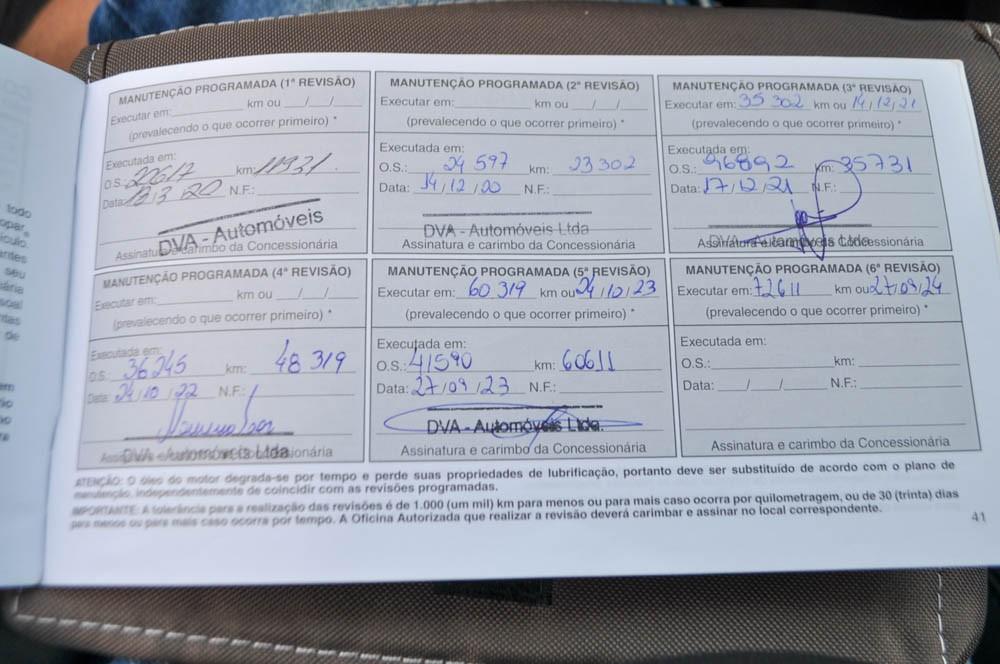 MANUTENÇÃO PROGRAMADA (1ª REVISÃO)
Executar em: km ou / /
(prevalecendo o que ocorrer primeiro) *
Executada em:
O.S.: 22617 km: 11931
Data: 13/3/20 N.F.:
DVA - Automóveis
Assinatura e carimbo da Concessionária
MANUTENÇÃO PROGRAMADA (2ª REVISÃO)
Executar em: km ou / /
(prevalecendo o que ocorrer primeiro) *
Executada em:
O.S.: 24 597 km: 23 302
Data: 14/12/20 N.F.:
DVA - Automóveis Ltda
Assinatura e carimbo da Concessionária
MANUTENÇÃO PROGRAMADA (3ª REVISÃO)
Executar em: 35 302 km ou 14/12/21
(prevalecendo o que ocorrer primeiro) *
Executada em:
O.S.: 96892 km: 35731
Data: 17/12/21 N.F.:
DVA - Automóveis Ltda
Assinatura e carimbo da Concessionária
MANUTENÇÃO PROGRAMADA (4ª REVISÃO)
Executar em: km ou / /
(prevalecendo o que ocorrer primeiro) *
Executada em:
O.S.: 36245 km: 48 319
Data: 24/10/22 N.F.:
DVA - Automóveis Ltda
Assinatura e carimbo da Concessionária
MANUTENÇÃO PROGRAMADA (5ª REVISÃO)
Executar em: 60 319 km ou 24/10/23
(prevalecendo o que ocorrer primeiro) *
Executada em:
O.S.: 41590 km: 60611
Data: 27/09/23 N.F.:
DVA - Automóveis Ltda.
Assinatura e carimbo da Concessionária
MANUTENÇÃO PROGRAMADA (6ª REVISÃO)
Executar em: 72611 km ou 27/09/24
(prevalecendo o que ocorrer primeiro) *
Executada em:
O.S.: km:
Data: / / N.F.:
Assinatura e carimbo da Concessionária
ATENÇÃO: O óleo do motor degrada-se por tempo e perde suas propriedades de lubrificação, portanto deve ser substituído de acordo com o plano de
manutenção, independentemente de coincidir com as revisões programadas.
IMPORTANTE: A tolerância para a realização das revisões é de 1.000 (um mil) km para menos ou para mais caso ocorra por quilometragem, ou de 30 (trinta) dias
para menos ou para mais caso ocorra por tempo. A Oficina Autorizada que realizar a revisão deverá carimbar e assinar no local correspondente.
41